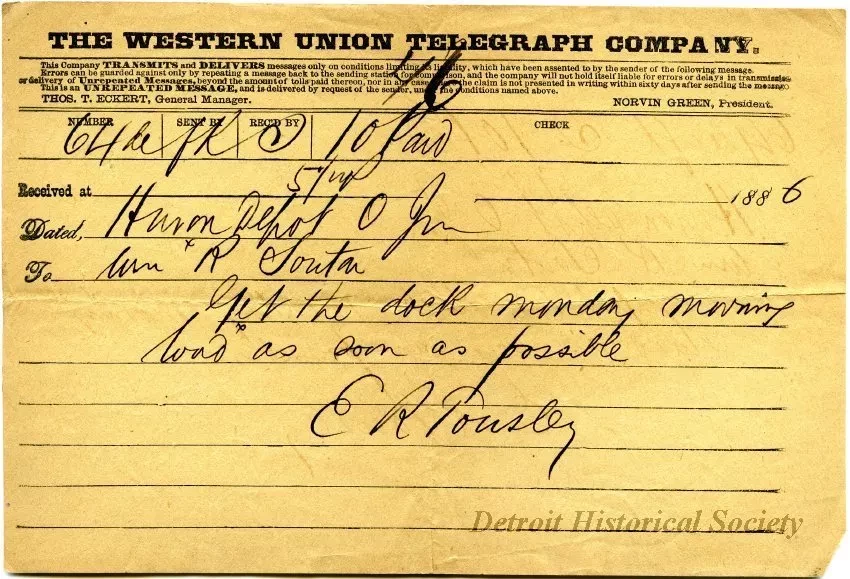 THE WESTERN UNION TELEGRAPH COMPANY.
This Company TRANSMITS and DELIVERS messages only on conditions limiting its liability, which have been assented to by the sender of the following message.
Errors can be guarded against only by repeating a message back to the sending station for comparison, and the company will not hold itself liable for errors or delays in transmission
or delivery of Unrepeated Messages, beyond the amount of tolls paid thereon, nor in any case where the claim is not presented in writing within sixty days after sending the message
This is an UNREPEATED MESSAGE, and is delivered by request of the sender, under the conditions named above.
THOS. T. ECKERT, General Manager. NORVIN GREEN, President.
NUMBER SENT BY REC'D BY CHECK
64 10 Paid
Received at 1886
Dated, Huron Depot O
To Wm R
Get the dock monday morning
load as soon as possible
E R Pousley
Detroit Historical Society